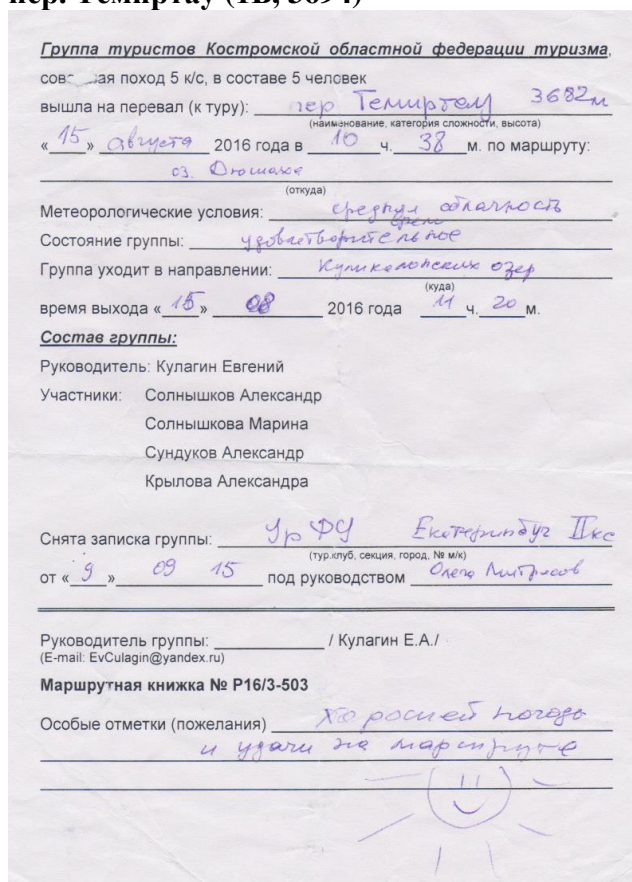 пер. Темиртау (1Б, 3694)
Группа туристов Костромской областной федерации туризма,
поход 5 к/с, в составе 5 человек
вышла на перевал (к туру): пер Темиртау 3682м
(наименование, категория сложности, высота)
«15» августа 2016 года в 10 ч. 38 м. по маршруту:
оз. Дюшаха
(откуда)
Метеорологические условия: средняя облачность
Состояние группы: удовлетворительное
Группа уходит в направлении: Куликалонских озер
(куда)
время выхода «15» 08 2016 года 11 ч. 20 м.
Состав группы:
Руководитель: Кулагин Евгений
Участники: Солнышков Александр
Солнышкова Марина
Сундуков Александр
Крылова Александра
Снята записка группы: УрФУ Екатеринбург IIкс
(тур.клуб, секция, город, № м/к)
от «9» 09 15 под руководством Олега
Руководитель группы: / Кулагин Е.А./
(E-mail: EvCulagin@yandex.ru)
Маршрутная книжка № Р16/3-503
Особые отметки (пожелания) Хорошей погоды
и удачи на маршруте